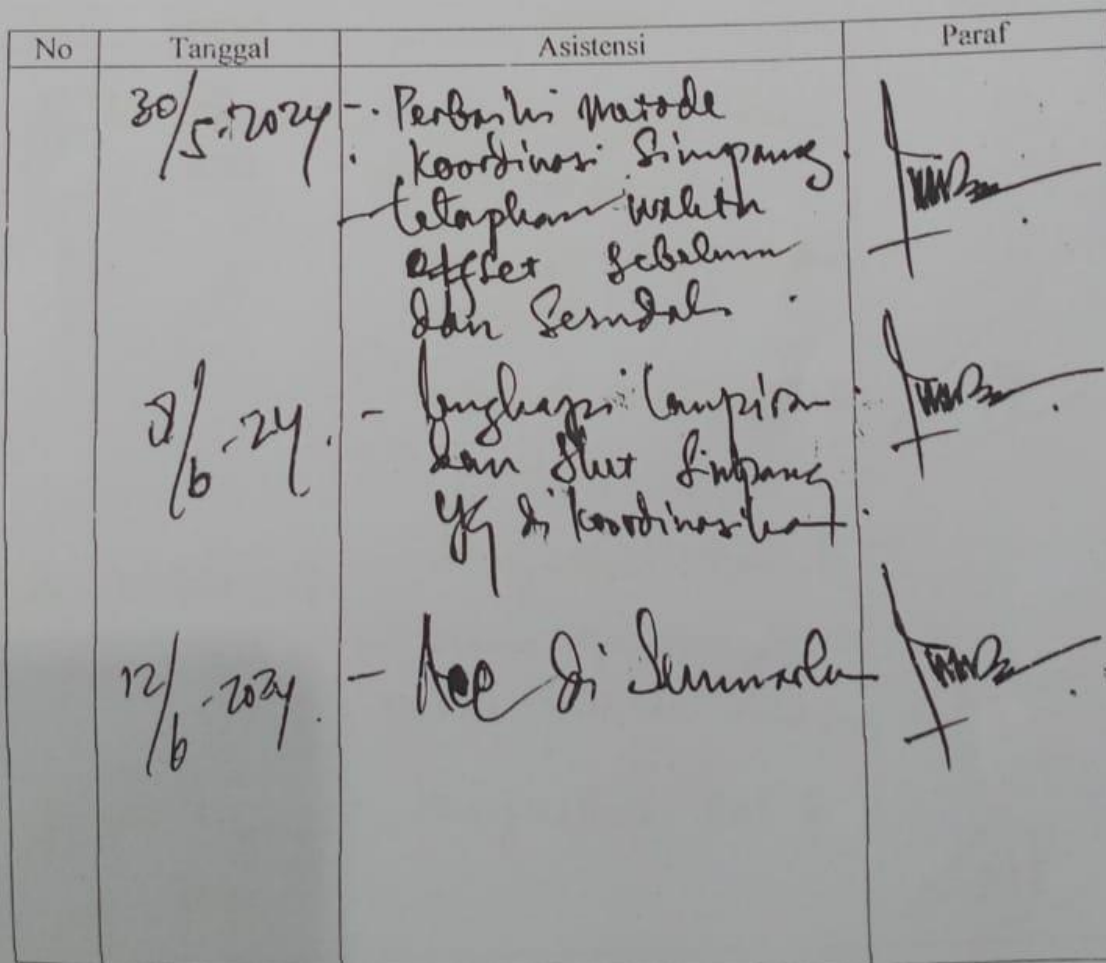 No Tanggal Asistensi Paraf
30/5-2024 -. Perbaiki Metode
koordinasi Simpang
- tetapkan waktu
offset sebelum
dan Sesudah.
8/6-24. - lengkapi lampiran
dan Simpang
yg di koordinasikan.
12/6-2024. - Acc di